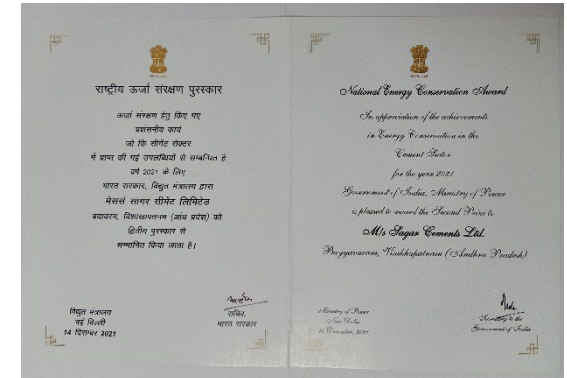 राष्ट्रीय ऊर्जा संरक्षण पुरस्कार
ऊर्जा संरक्षण हेतु किए गए
प्रशंसनीय कार्य
जो कि सीमेंट सेक्टर
में प्राप्त की गई उपलब्धियों से सम्बन्धित है
वर्ष 2021 के लिए
भारत सरकार, विद्युत मंत्रालय द्वारा
मेसर्स सागर सीमेंट लिमिटेड
बयावरम, विशाखापत्तनम (आंध्र प्रदेश) को
द्वितीय पुरस्कार से
सम्मानित किया जाता है।
विद्युत मंत्रालय
नई दिल्ली
14 दिसम्बर 2021
सचिव,
भारत सरकार
National Energy Conservation Award
In appreciation of the achievements
in Energy Conservation in the
Cement Sector
for the year 2021
Government of India, Ministry of Power
is pleased to award the Second Prize to
M/s Sagar Cements Ltd.
Bayyavaram, Visakhapatnam (Andhra Pradesh)
Ministry of Power
New Delhi
14 December, 2021
Secretary to the
Government of India